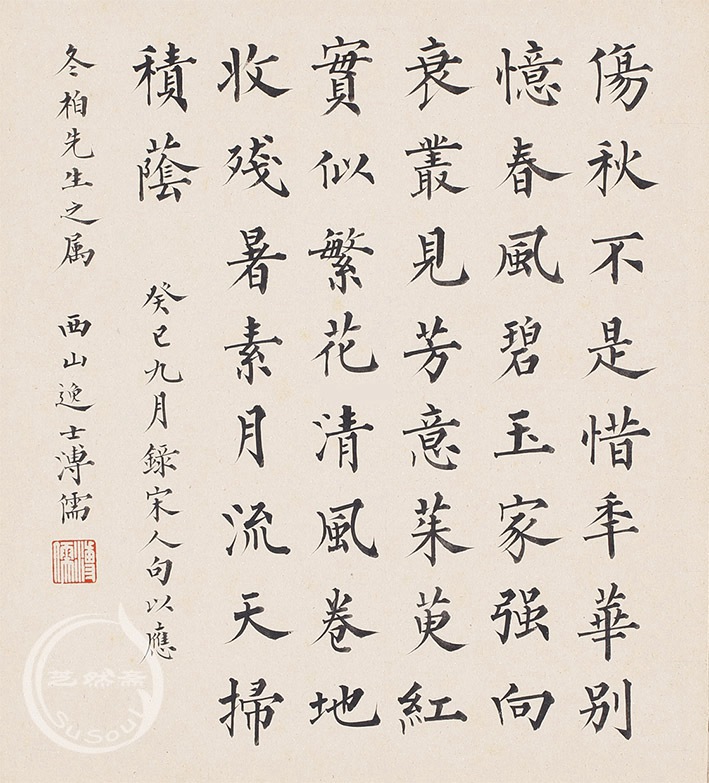 傷秋不是惜秊華别
憶春風碧玉家强向
衰叢見芳意茱萸紅
實似繁花清風卷地
收残暑素月流天掃
積蔭
癸巳九月錄宋人句以應
冬柏先生之属 西山逸士溥儒
溥儒
芝然斋
SuSoul